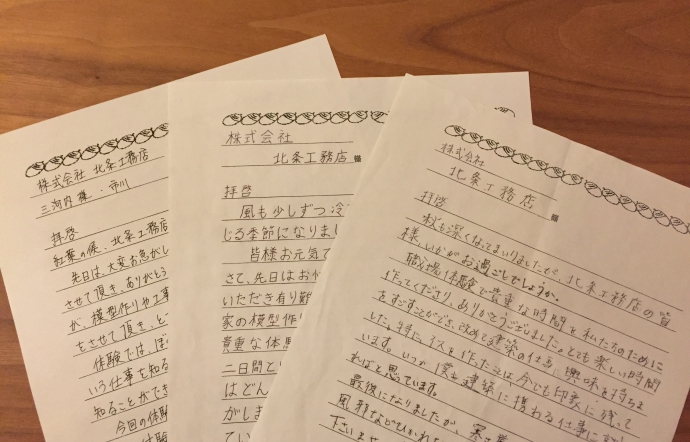 株式会社 北条工務店
三河内様・市川
拝啓
紅葉の候、北条工務店
先日は、大変お急がし
させて頂き、ありがとう
が、模型作りや工事
をさせて頂き、と
体験では、ぼ
いう仕事を知る
知ることができ
今回の体験
株式会社
北条工務店 様
拝啓
風も少しずつ冷
じる季節になりまし
皆様お元気で
さて、先日はお忙
いただき有り難
家の模型作り
貴重な体験
二日間と
はどん
がしま
てい
株式会社
北条工務店 様
拝啓
秋も深くなってまいりましたが、北条工務店の皆
様、いかがお過ごしでしょうか。
職場体験で貴重な時間を私たちのために
作ってくださり、ありがとうございました。とても楽しい時間
をすごすことができ、改めて建築の仕事に興味を持ちま
した。特に、イスを作ったことは今でも印象に残って
います。いつか僕も建築に携わる仕事に
ればと思っています。
最後になりましたが、寒さ
風邪などひかれ
下さいませ